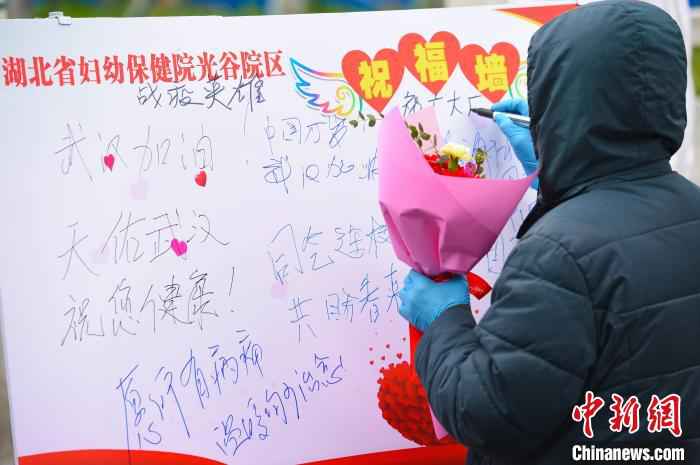 湖北省妇幼保健院光谷院区
祝福墙
战疫英雄
武汉加油!
中国万
武汉加油
天佑武汉
祝您健康!
同气连枝
共盼春来
愿所有病痛
温暖的治愈!
中新网
Chinanews.com